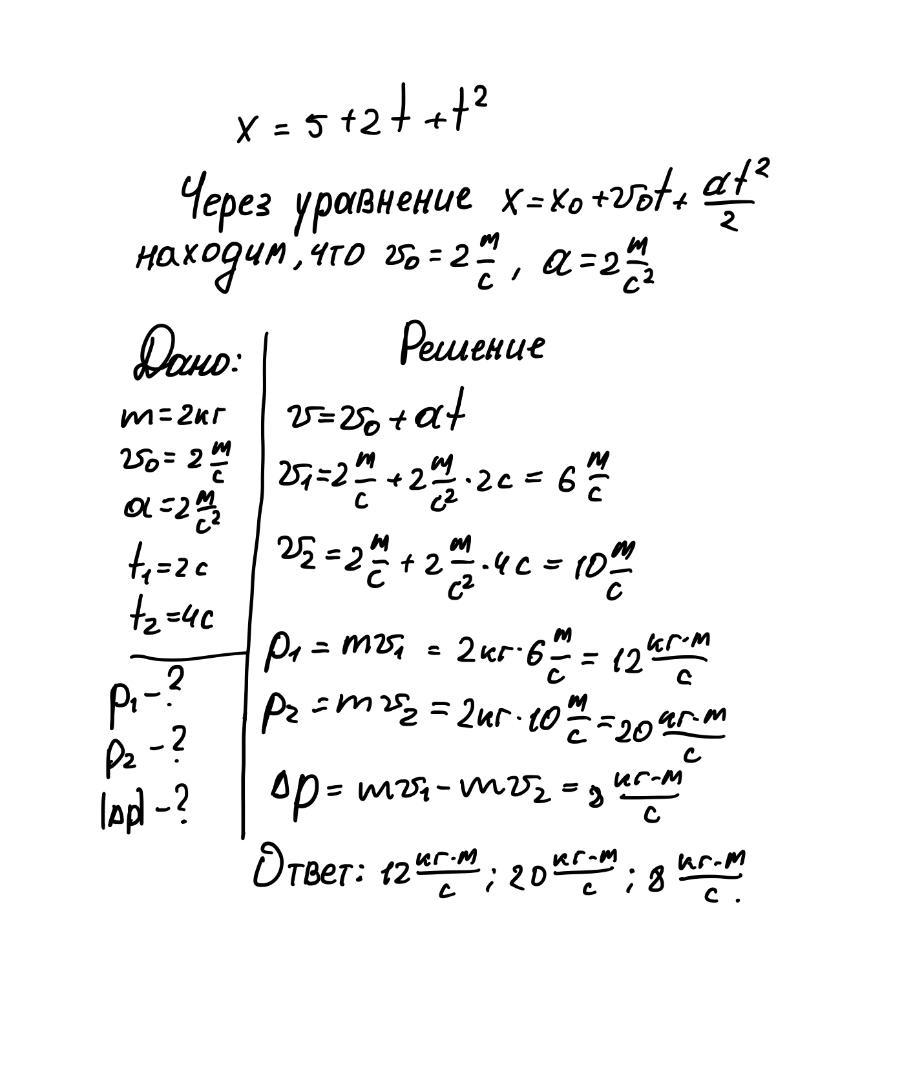 x = 5 + 2t + t²
Через уравнение x = x₀ + v₀t + at²/2
находим, что v₀ = 2 м/с, a = 2 м/с²
Дано:
m = 2кг
v₀ = 2 м/с
a = 2 м/с²
t₁ = 2с
t₂ = 4с
p₁ - ?
p₂ - ?
|Δp| - ?
Решение
v = v₀ + at
v₁ = 2 м/с + 2 м/с² · 2с = 6 м/с
v₂ = 2 м/с + 2 м/с² · 4с = 10 м/с
p₁ = mv₁ = 2кг · 6 м/с = 12 кг·м/с
p₂ = mv₂ = 2кг · 10 м/с = 20 кг·м/с
Δp = mv₁ - mv₂ = 8 кг·м/с
Ответ: 12 кг·м/с ; 20 кг·м/с ; 8 кг·м/с.